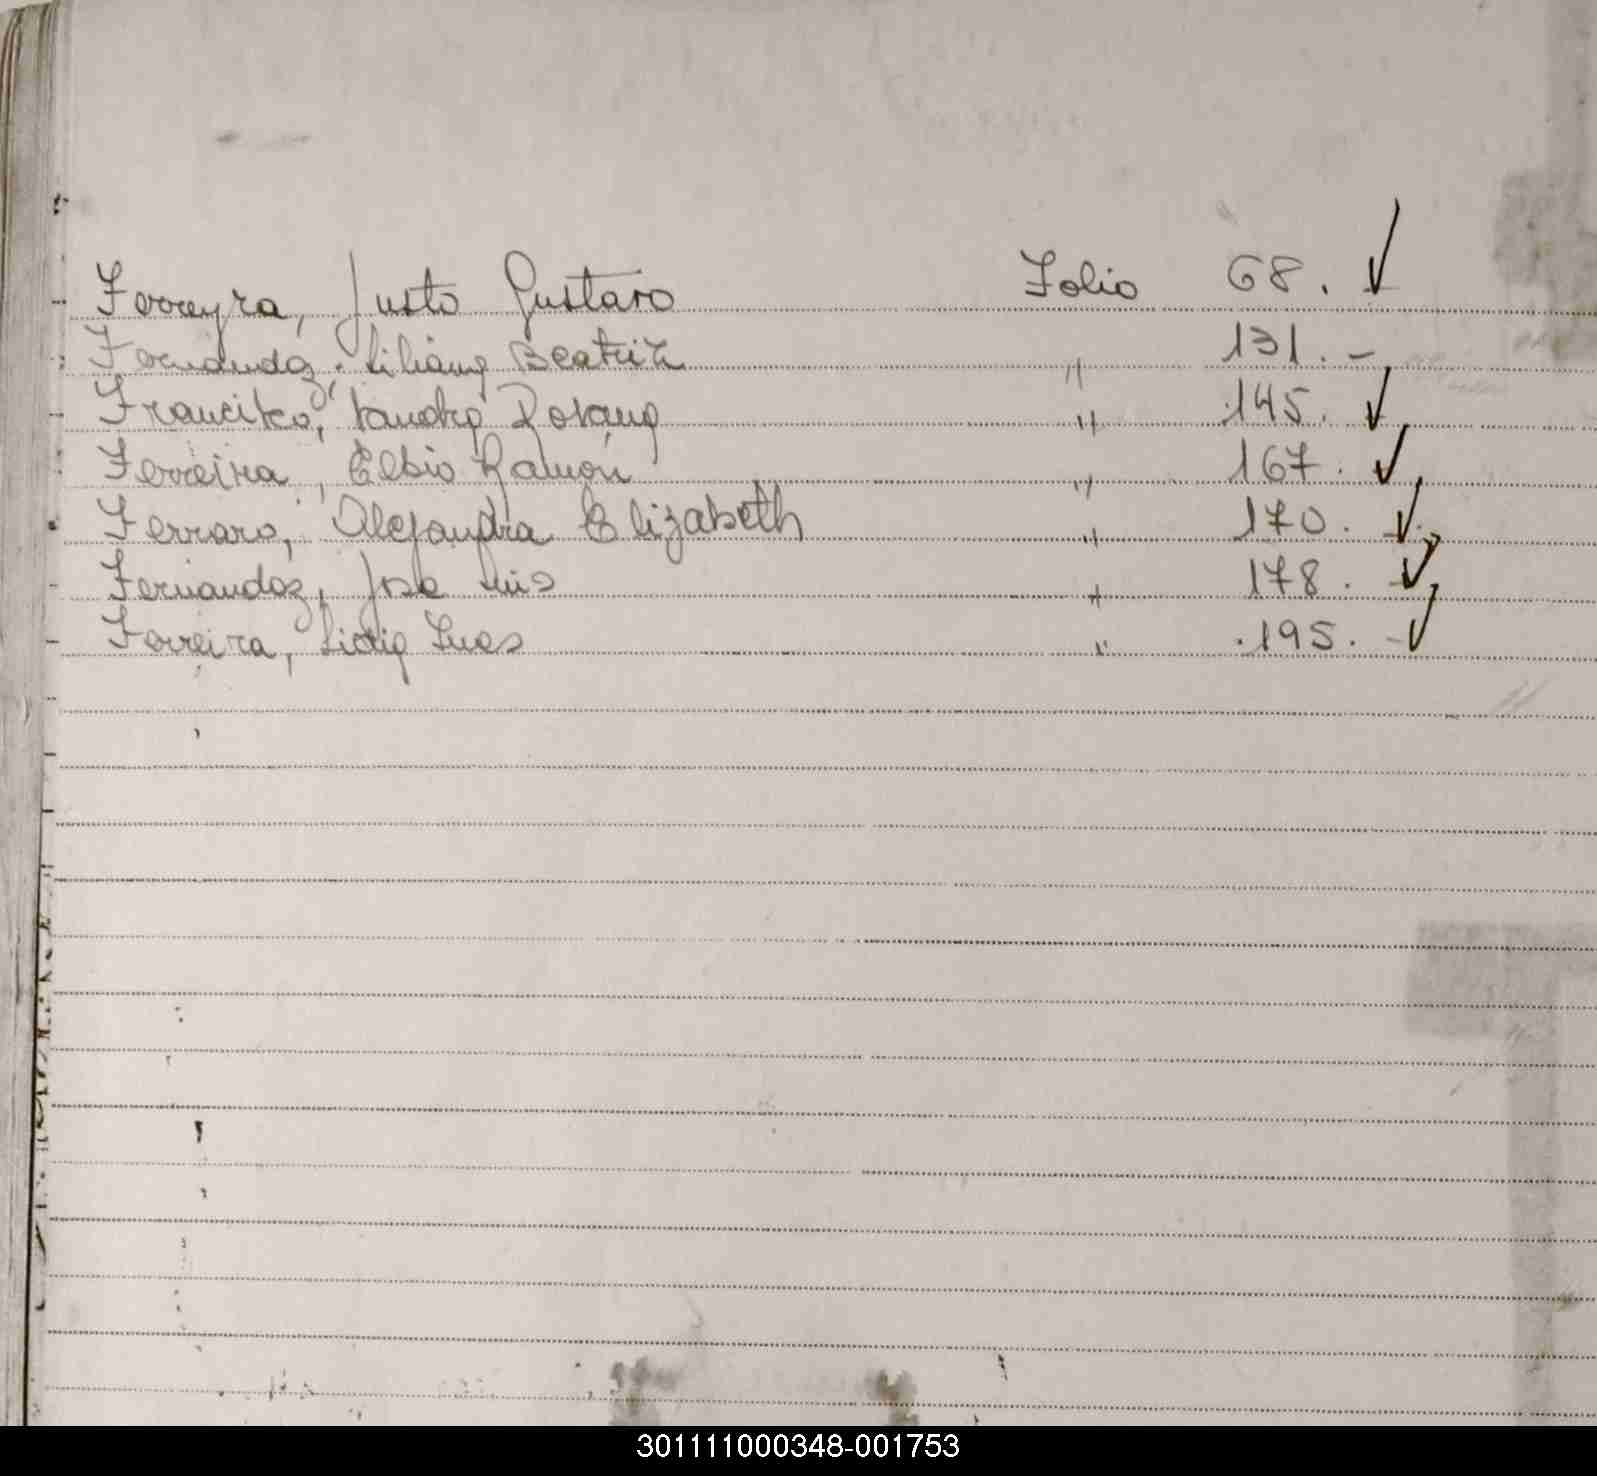 Ferreyra, Justo Gustavo Folio 68.
Fernandez, Liliana Beatriz " 131. -
Francisco, Sandra Rosana " 145.
Ferreira, Elbio Ramón " 167.
Ferraro, Alejandra Elizabeth " 170.
Fernandez, Jose Luis " 178.
Ferreira, Lidia Ines " 195. -
301111000348-001753